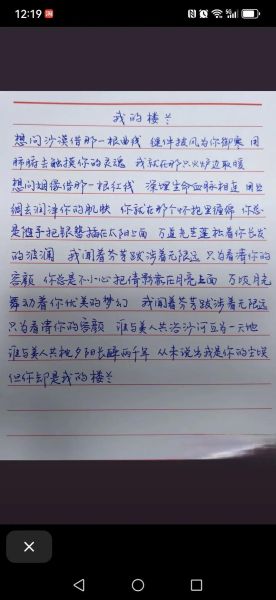 12:19
我的楼兰
想问沙漠借那一根曲线 缝件披风为你御寒 用
肺腑去触摸你的灵魂 我就在那只火炉边取暖
想问姻缘借那一根红线 深埋生命血脉相连 用丝
绸去润泽你的肌肤 你就在那个怀抱里缠绵 你总
是随手把银簪插在太阳上面 万道光芒蓬松着你长发
的波澜 我闻着芬芳跋涉着无限远 只为看清你的
容颜 你总是不小心把倩影靠在月亮上面 万顷月光
舞动着你优美的梦幻 我闻着芬芳跋涉着无限远
只为看清你的容颜 谁与美人共浴沙河互为一天地
谁与美人共枕夕阳长醉两千年 从未说出我是你的尘埃
但你却是我的楼兰